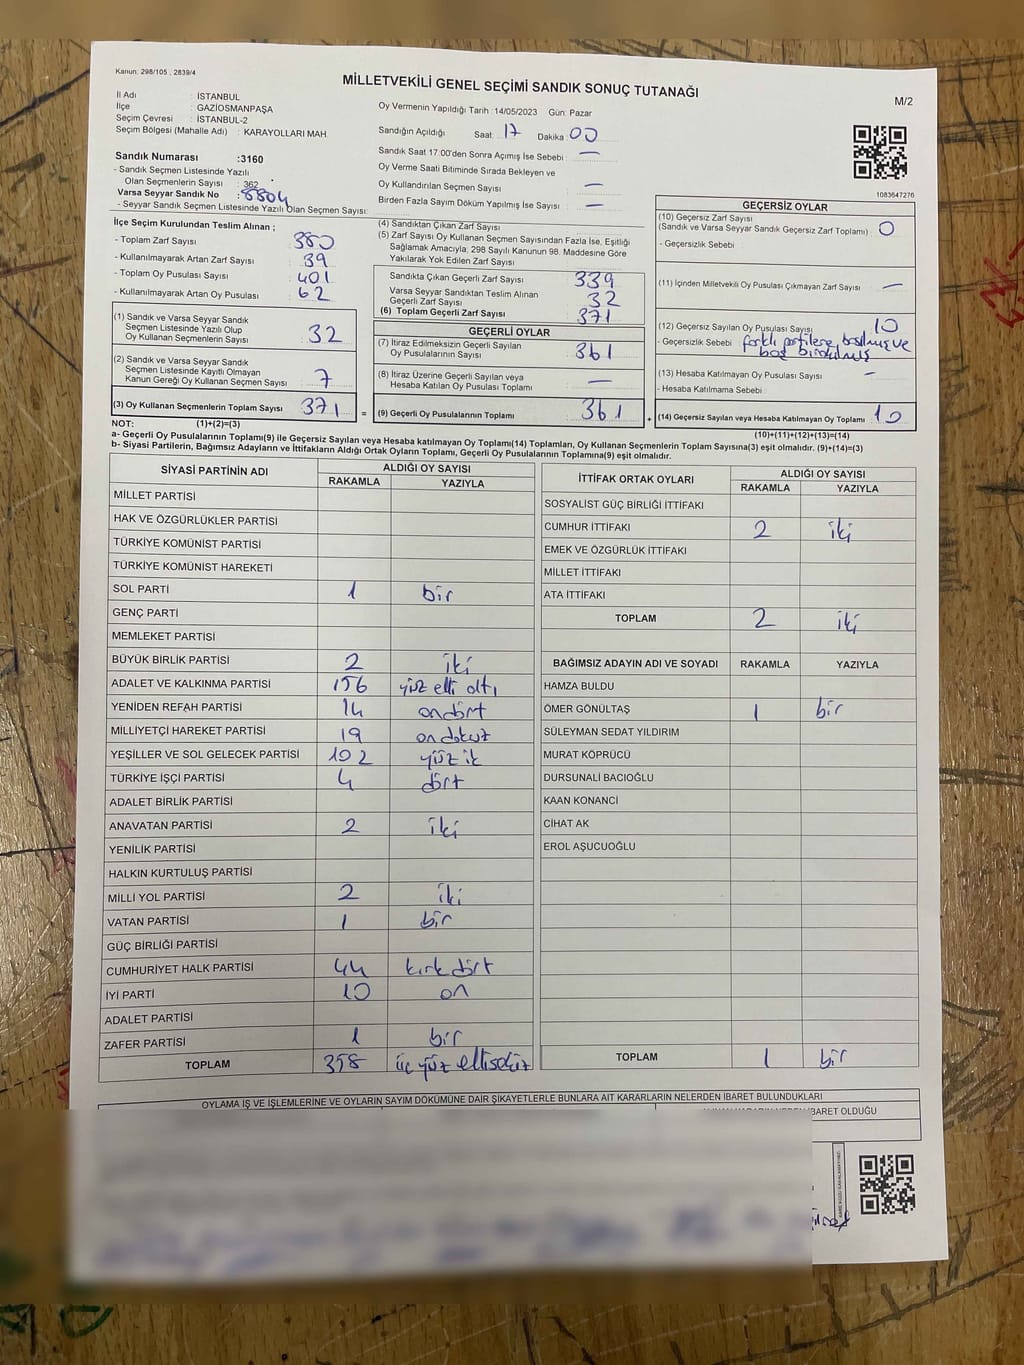 Kanun: 298/105 , 2839/4
MİLLETVEKİLİ GENEL SEÇİMİ SANDIK SONUÇ TUTANAĞI
M/2
İl Adı : İSTANBUL
İlçe : GAZİOSMANPAŞA
Seçim Çevresi : İSTANBUL-2
Seçim Bölgesi (Mahalle Adı) : KARAYOLLARI MAH.
Sandık Numarası :3160
- Sandık Seçmen Listesinde Yazılı
Olan Seçmenlerin Sayısı : 362
Varsa Seyyar Sandık No : 8804
- Seyyar Sandık Seçmen Listesinde Yazılı Olan Seçmen Sayısı:
Oy Vermenin Yapıldığı Tarih :14/05/2023 Gün: Pazar
Sandığın Açıldığı Saat: 17 Dakika : 00
Sandık Saat 17.00'den Sonra Açımış İse Sebebi : —
Oy Verme Saati Bitiminde Sırada Bekleyen ve
Oy Kullandırılan Seçmen Sayısı : —
Birden Fazla Sayım Döküm Yapılmış İse Sayısı : —
1083647276
İlçe Seçim Kurulundan Teslim Alınan ;
- Toplam Zarf Sayısı : 380
- Kullanılmayarak Artan Zarf Sayısı : 39
- Toplam Oy Pusulası Sayısı : 401
- Kullanılmayarak Artan Oy Pusulası : 62
(1) Sandık ve Varsa Seyyar Sandık
Seçmen Listesinde Yazılı Olup
Oy Kullanan Seçmenlerin Sayısı : 32
(2) Sandık ve Varsa Seyyar Sandık
Seçmen Listesinde Kayıtlı Olmayan
Kanun Gereği Oy Kullanan Seçmen Sayısı : 7
(3) Oy Kullanan Seçmenlerin Toplam Sayısı : 371 =
(4) Sandıktan Çıkan Zarf Sayısı :
(5) Zarf Sayısı Oy Kullanan Seçmen Sayısından Fazla İse, Eşitliği
Sağlamak Amacıyla; 298 Sayılı Kanunun 98. Maddesine Göre
Yakılarak Yok Edilen Zarf Sayısı :
Sandıkta Çıkan Geçerli Zarf Sayısı : 339
Varsa Seyyar Sandıktan Teslim Alınan
Geçerli Zarf Sayısı : 32
(6) Toplam Geçerli Zarf Sayısı : 371
GEÇERLİ OYLAR
(7) İtiraz Edilmeksizin Geçerli Sayılan
Oy Pusulalarının Sayısı : 361
(8) İtiraz Üzerine Geçerli Sayılan veya
Hesaba Katılan Oy Pusulası Toplamı : —
(9) Geçerli Oy Pusulalarının Toplamı : 361 +
GEÇERSİZ OYLAR
(10) Geçersiz Zarf Sayısı
(Sandık ve Varsa Seyyar Sandık Geçersiz Zarf Toplamı) : 0
- Geçersizlik Sebebi :
(11) İçinden Milletvekili Oy Pusulası Çıkmayan Zarf Sayısı : —
(12) Geçersiz Sayılan Oy Pusulası Sayısı : 10
- Geçersizlik Sebebi : farklı partilere basılmış ve
boş
(13) Hesaba Katılmayan Oy Pusulası Sayısı : —
- Hesaba Katılmama Sebebi :
(14) Geçersiz Sayılan veya Hesaba Katılmayan Oy Toplamı : 10
NOT: (1)+(2)=(3)
(10)+(11)+(12)+(13)=(14)
a- Geçerli Oy Pusulalarının Toplamı(9) ile Geçersiz Sayılan veya Hesaba katılmayan Oy Toplamı(14) Toplamları, Oy Kullanan Seçmenlerin Toplam Sayısına(3) eşit olmalıdır. (9)+(14)=(3)
b- Siyasi Partilerin, Bağımsız Adayların ve İttifakların Aldığı Ortak Oyların Toplamı, Geçerli Oy Pusulalarının Toplamına(9) eşit olmalıdır.
SİYASİ PARTİNİN ADI ALDIĞI OY SAYISI
RAKAMLA YAZIYLA
MİLLET PARTİSİ
HAK VE ÖZGÜRLÜKLER PARTİSİ
TÜRKİYE KOMÜNİST PARTİSİ
TÜRKİYE KOMÜNİST HAREKETİ
SOL PARTİ 1 bir
GENÇ PARTİ
MEMLEKET PARTİSİ
BÜYÜK BİRLİK PARTİSİ 2 iki
ADALET VE KALKINMA PARTİSİ 156 yüz elli altı
YENİDEN REFAH PARTİSİ 14 ondört
MİLLİYETÇİ HAREKET PARTİSİ 19 on dokuz
YEŞİLLER VE SOL GELECEK PARTİSİ 102 yüz ik
TÜRKİYE İŞÇİ PARTİSİ 4 dört
ADALET BİRLİK PARTİSİ
ANAVATAN PARTİSİ 2 iki
YENİLİK PARTİSİ
HALKIN KURTULUŞ PARTİSİ
MİLLİ YOL PARTİSİ 2 iki
VATAN PARTİSİ 1 bir
GÜÇ BİRLİĞİ PARTİSİ
CUMHURİYET HALK PARTİSİ 44 kırk dört
İYİ PARTİ 10 on
ADALET PARTİSİ
ZAFER PARTİSİ 1 bir
TOPLAM 358 üç yüz ellisekiz
İTTİFAK ORTAK OYLARI ALDIĞI OY SAYISI
RAKAMLA YAZIYLA
SOSYALİST GÜÇ BİRLİĞİ İTTİFAKI
CUMHUR İTTİFAKI 2 iki
EMEK VE ÖZGÜRLÜK İTTİFAKI
MİLLET İTTİFAKI
ATA İTTİFAKI
TOPLAM 2 iki
BAĞIMSIZ ADAYIN ADI VE SOYADI RAKAMLA YAZIYLA
HAMZA BULDU
ÖMER GÖNÜLTAŞ 1 bir
SÜLEYMAN SEDAT YILDIRIM
MURAT KÖPRÜCÜ
DURSUNALİ BACIOĞLU
KAAN KONANCİ
CİHAT AK
EROL AŞUCUOĞLU
TOPLAM 1 bir
OYLAMA İŞ VE İŞLEMLERİNE VE OYLARIN SAYIM DÖKÜMÜNE DAİR ŞİKAYETLERLE BUNLARA AİT KARARLARIN NELERDEN İBARET BULUNDUKLARI
İBARET OLDUĞU